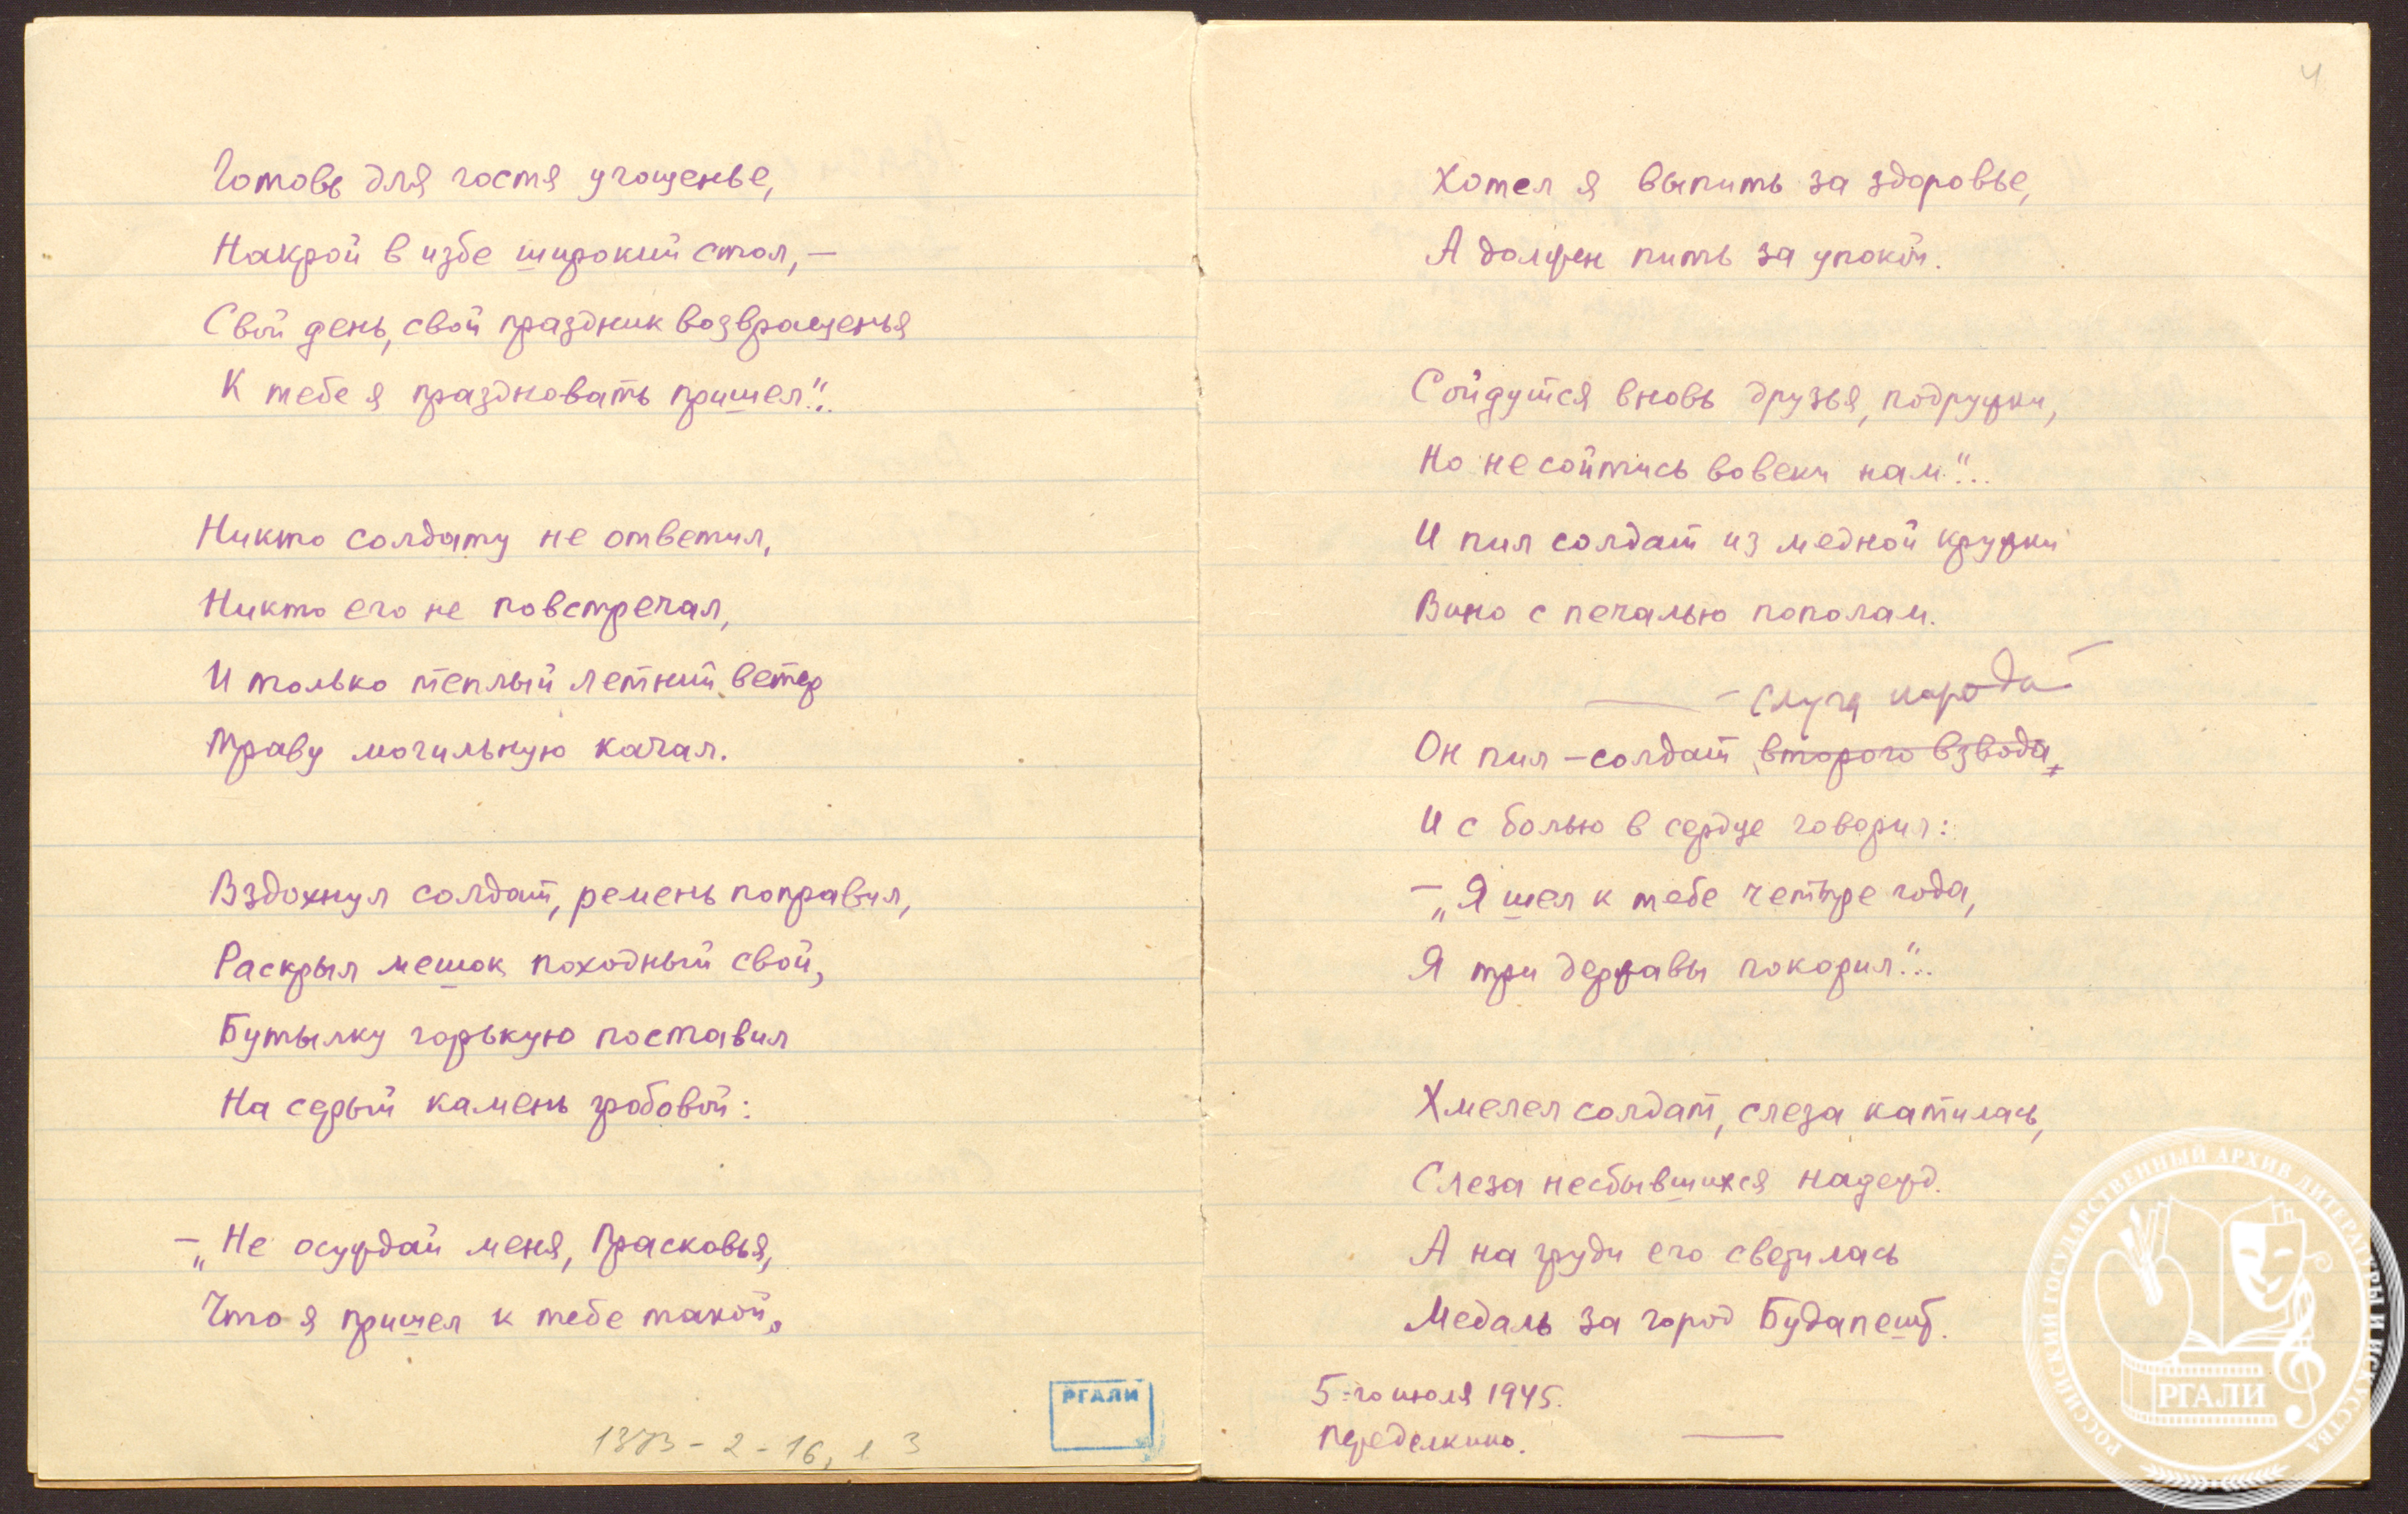 Готовь для гостя угощенье,
Накрой в избе широкий стол, —
Свой день, свой праздник возвращенья
К тебе я праздновать пришел"...
Никто солдату не ответил,
Никто его не повстречал,
И только теплый летний ветер
Траву могильную качал.
Вздохнул солдат, ремень поправил,
Раскрыл мешок походный свой,
Бутылку горькую поставил
На серый камень гробовой:
— „Не осуждай меня, Прасковья,
Что я пришел к тебе такой,
РГАЛИ
1373 - 2 - 16, л 3
4
Хотел я выпить за здоровье,
А должен пить за упокой.
Сойдутся вновь друзья, подружки,
Но не сойтись вовеки нам"...
И пил солдат из медной кружки
Вино с печалью пополам.
— слуга народа —
Он пил – солдат второго взвода,
И с болью в сердце говорил:
— „Я шел к тебе четыре года,
Я три державы покорил"...
Хмелел солдат, слеза катилась,
Слеза несбывшихся надежд.
А на груди его светилась
Медаль за город Будапешт.
5-го июля 1945.
Переделкино.
РОССИЙСКИЙ ГОСУДАРСТВЕННЫЙ АРХИВ ЛИТЕРАТУРЫ И ИСКУССТВА
РГАЛИ